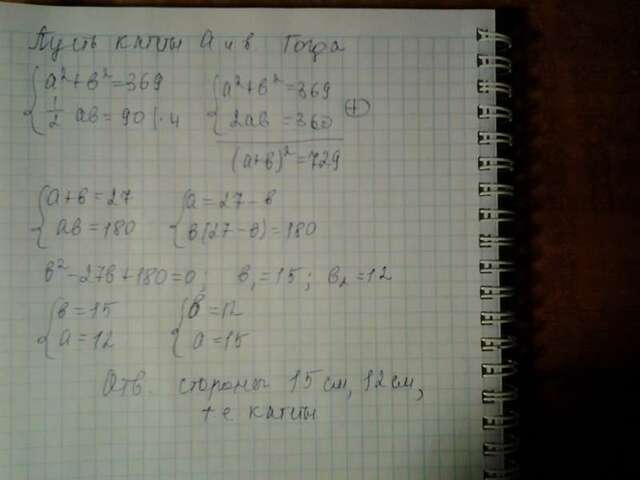 Пусть катты а и в Тогда
{a²+в²=369
{½ ab=90 |·4
{a²+в²=369
{2ab=360 (+)
(a+в)²=729
{a+в=27
{ab=180
{a=27-в
{в(27-в)=180
в²-27в+180=0; в₁=15; в₂=12
{в=15
{a=12
{в=12
{a=15
Отв. стороны 15 см, 12 см,
т е катты